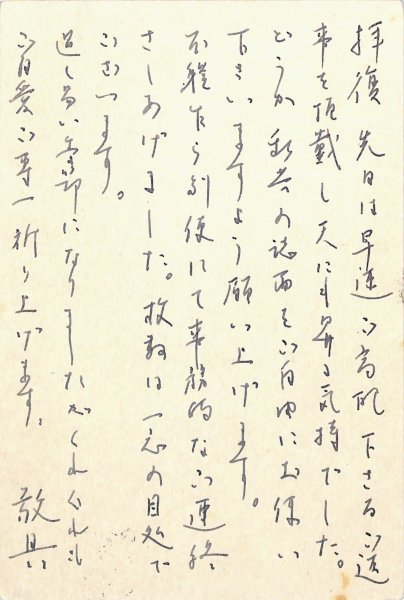 拝復 先日は早速御高配下さる御返
事を頂戴し天にも昇る気持でした。
どうか新春の誌面を御自由にお使い
下さいますよう願い上げます。
不躾乍ら別便にて事務的な御連絡
さしあげました。枚数は一応の目処で
ございます。
過し易い季節になりましたがくれぐれも
御自愛御専一祈り上げます。 敬具